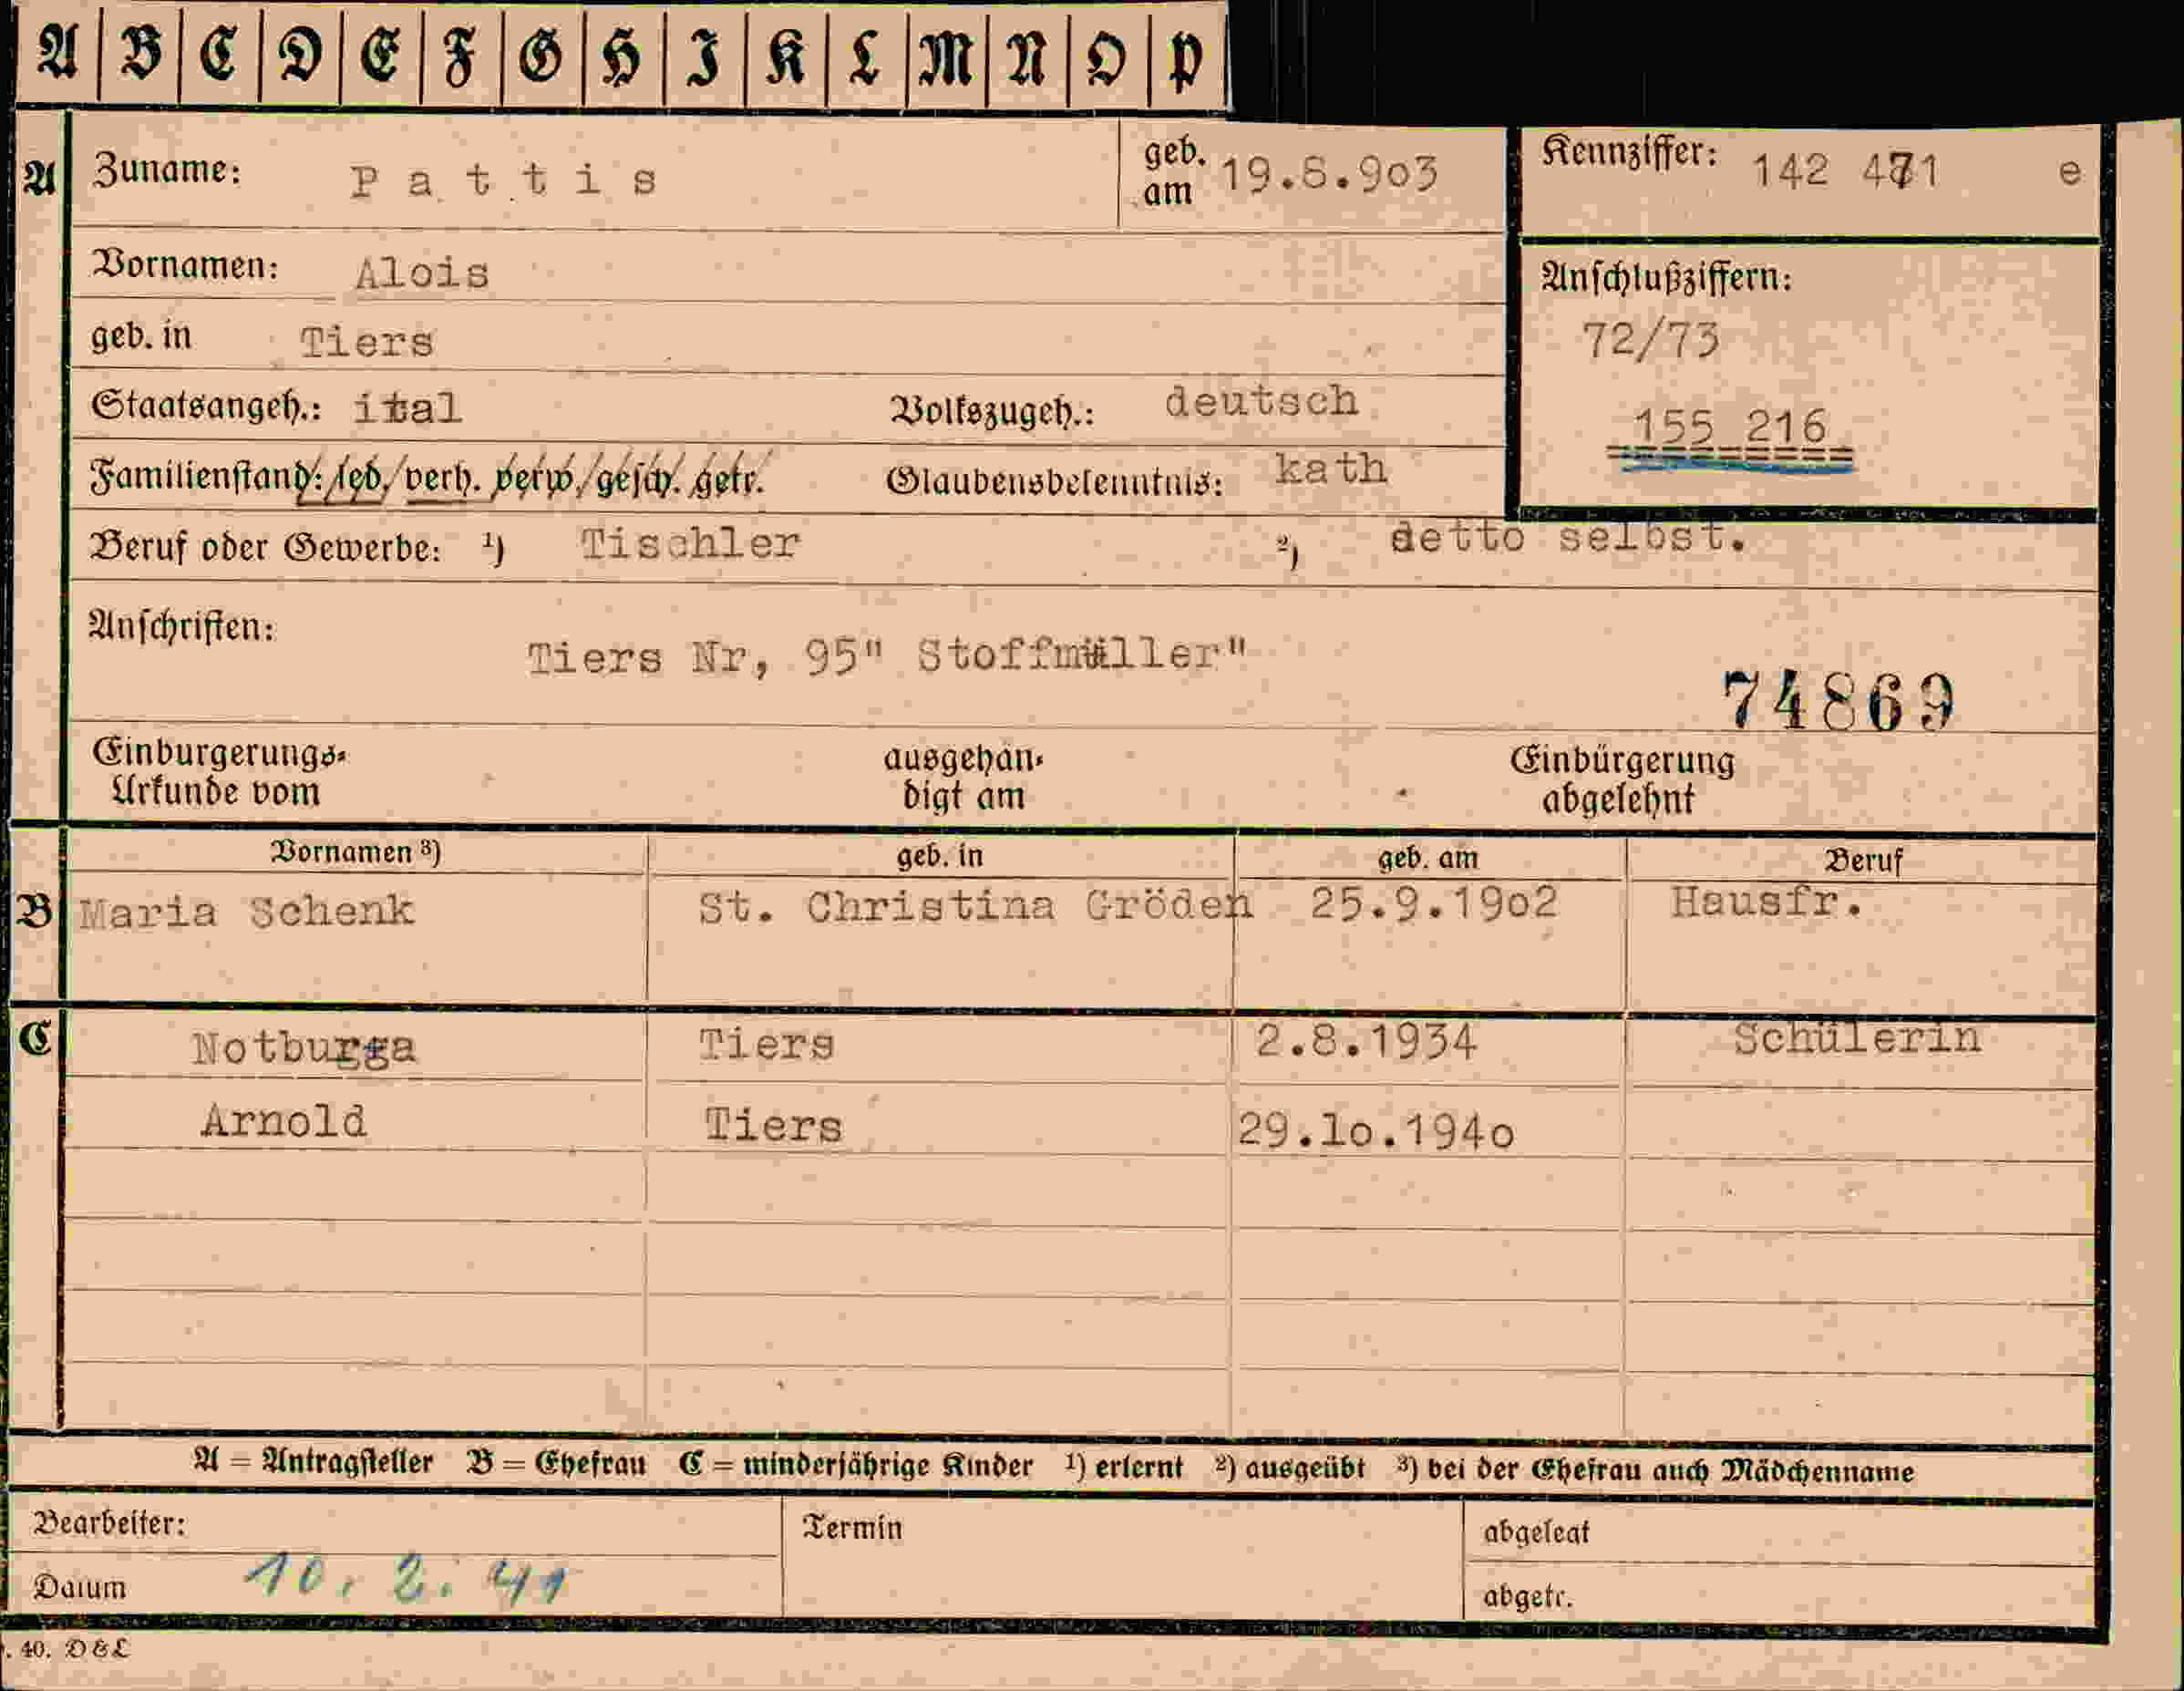 A B C D E F G H I K L M N O P
A Zuname: Pattis geb. am 19.8.903 Kennziffer: 142 471 e
Vornamen: Alois
Anschlußziffern:
geb. in Tiers 72/73
Staatsangeh.: ital Volkszugeh.: deutsch
155 216
Familienstand: led. verh. verw. gesch. getr. Glaubensbekenntnis: kath
Beruf oder Gewerbe: ¹) Tischler ²) detto selbst.
Anschriften:
Tiers Nr, 95" Stoffmüller"
74869
Einbürgerungs-
Urkunde vom
ausgehän-
digt am
Einbürgerung
abgelehnt
Vornamen ³) geb. in geb. am Beruf
B Maria Schenk St. Christina Gröden 25.9.19o2 Hausfr.
C Notburga Tiers 2.8.1934 Schülerin
Arnold Tiers 29.1o.194o
A = Antragsteller B = Ehefrau C = minderjährige Kinder ¹) erlernt ²) ausgeübt ³) bei der Ehefrau auch Mädchenname
Bearbeiter: Termin abgelegt
Datum 10. 2. 41 abgetr.
. 40. D & L